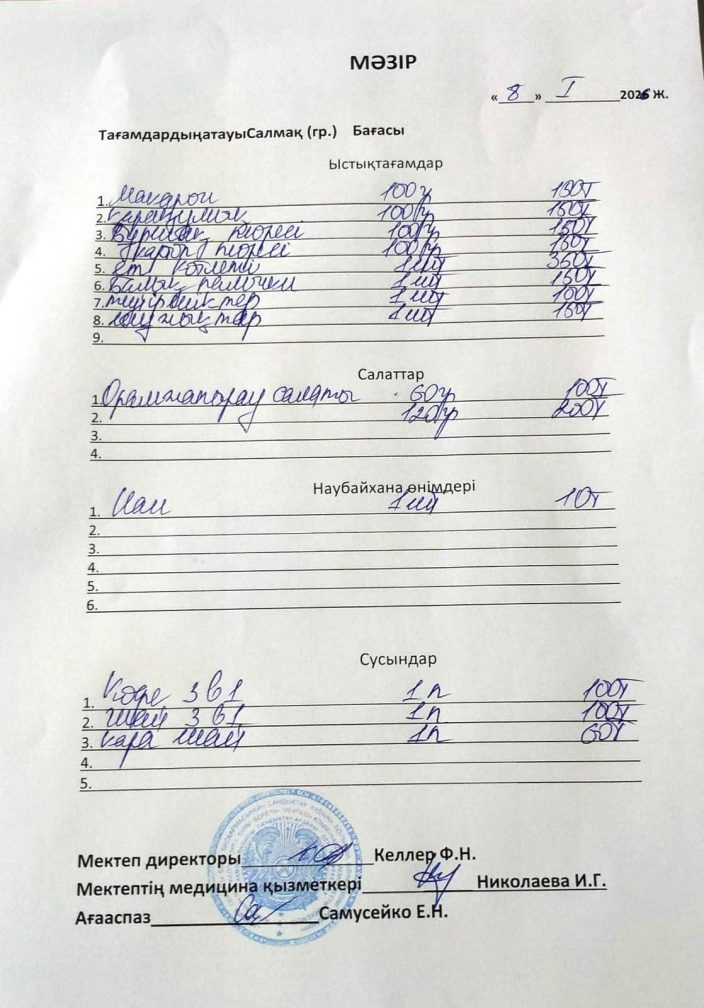 МӘЗІР
«8» I 2026 Ж.
ТағамдардыңатауыСалмақ (гр.) Бағасы
Ыстықтағамдар
1. Макарон 100гр 150т
2. Қарақұмық 100гр 150т
3. Бұршақ пюресі 100гр 150т
4. картоп пюресі 100гр 150т
5. ет котлеті 1шт 350т
6. Балық палочки 1шт 150т
7. 1шт 100т
8. 1шт 150т
9.
Салаттар
1. салаты 60гр 100т
2. 120гр 200т
3.
4.
Наубайхана өнімдері
1. Нан 1шт 10т
2.
3.
4.
5.
6.
Сусындар
1. Кофе 3в1 1п 100т
2. шай 3в1 1п 100т
3. кара шай 1п 60т
4.
5.
Мектеп директоры Келлер Ф.Н.
Мектептің медицина қызметкері Николаева И.Г.
Ағааспаз Самусейко Е.Н.